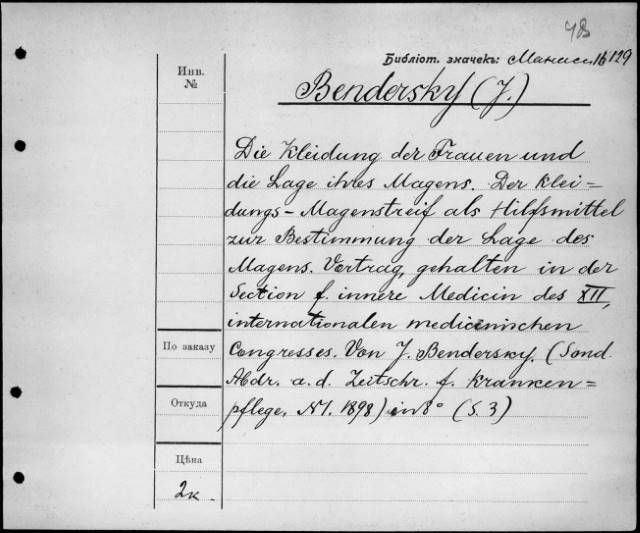 48
Библіот. значекъ: Манасси 16/129
Инв.
№
Bendersky (J.)
Die Kleidung der Frauen und
die Lage ihres Magens. Der Klei=
dungs-Magenstreif als Hilfsmittel
zur Bestimmung der Lage des
Magens. Vortrag, gehalten in der
Section f. innere Medicin des XII,
internationalen medicinischen
Congresses. Von J. Bendersky. (Sond.
Abdr. a. d. Zeitschr. f. Kranken=
pflege, N1. 1898) in 8° (S. 3)
По заказу
Откуда
Цѣна
2к.